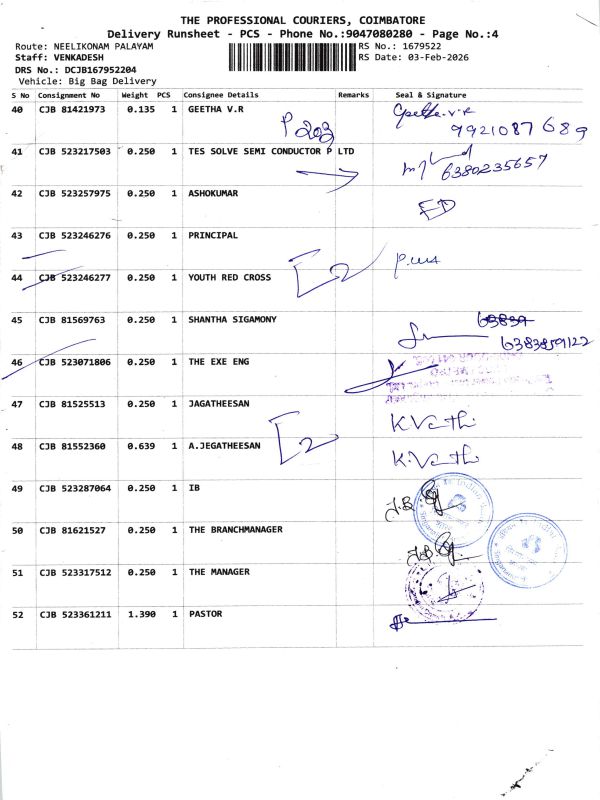 THE PROFESSIONAL COURIERS, COIMBATORE
Delivery Runsheet - PCS - Phone No.:9047080280 - Page No.:4
Route: NEELIKONAM PALAYAM RS No.: 1679522
Staff: VENKADESH RS Date: 03-Feb-2026
DRS No.: DCJB167952204
Vehicle: Big Bag Delivery
S No Consignment No Weight PCS Consignee Details Remarks Seal & Signature
40 CJB 81421973 0.135 1 GEETHA V.R Geetha.v.r
P 203 9921087689
41 CJB 523217503 0.250 1 TES SOLVE SEMI CONDUCTOR P LTD
6380235657
42 CJB 523257975 0.250 1 ASHOKUMAR
ED
43 CJB 523246276 0.250 1 PRINCIPAL
2
44 CJB 523246277 0.250 1 YOUTH RED CROSS
45 CJB 81569763 0.250 1 SHANTHA SIGAMONY 63839
6383859122
46 CJB 523071806 0.250 1 THE EXE ENG
47 CJB 81525513 0.250 1 JAGATHEESAN K.Vathi
2
48 CJB 81552360 0.639 1 A.JEGATHEESAN K.Vathi
49 CJB 523287064 0.250 1 IB
50 CJB 81621527 0.250 1 THE BRANCHMANAGER
51 CJB 523317512 0.250 1 THE MANAGER
52 CJB 523361211 1.390 1 PASTOR